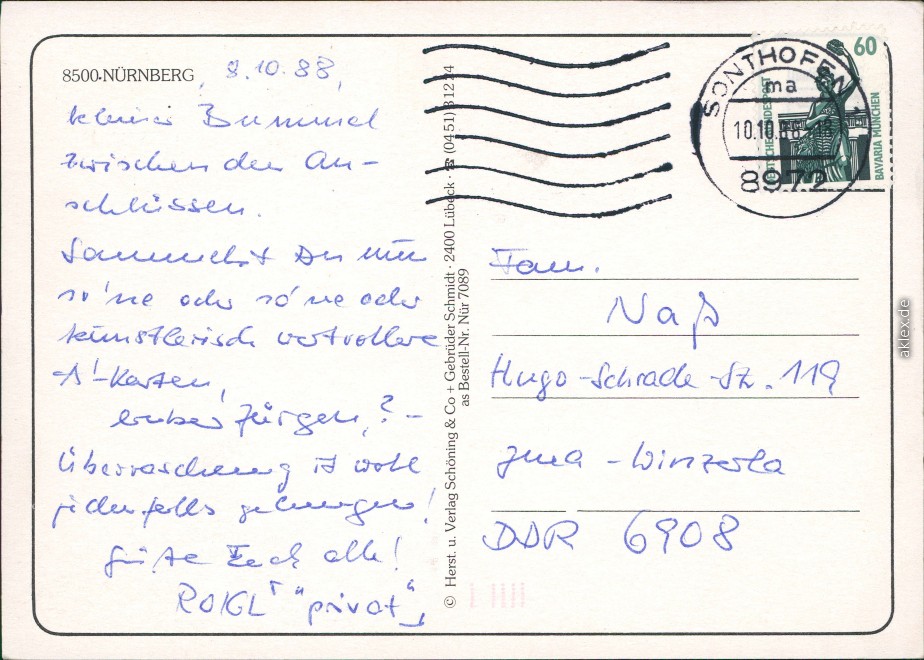 8500·NÜRNBERG, 8.10.88,
kleiner Bummel
zwischen den An-
schlüssen.
Sammelst Du nur
so'ne oder so'ne oder
künstlerisch wertvollere
A'-Karten,
lieber Jürgen,? -
Überraschung ist wohl
jedenfalls gelungen!
Grüße Euch alle!
ROIGL "privat"
© Herst. u. Verlag Schöning & Co + Gebrüder Schmidt · 2400 Lübeck · ☎ (0451) 31274
as Bestell-Nr. Nür 7089
SONTHOFEN
ma
10.10.88
8972
60
DEUTSCHE BUNDESPOST
BAVARIA MÜNCHEN
Fam.
Naß
Hugo-Schrade-Str. 119
Jena - Winzerla
DDR 6908
aklex.de